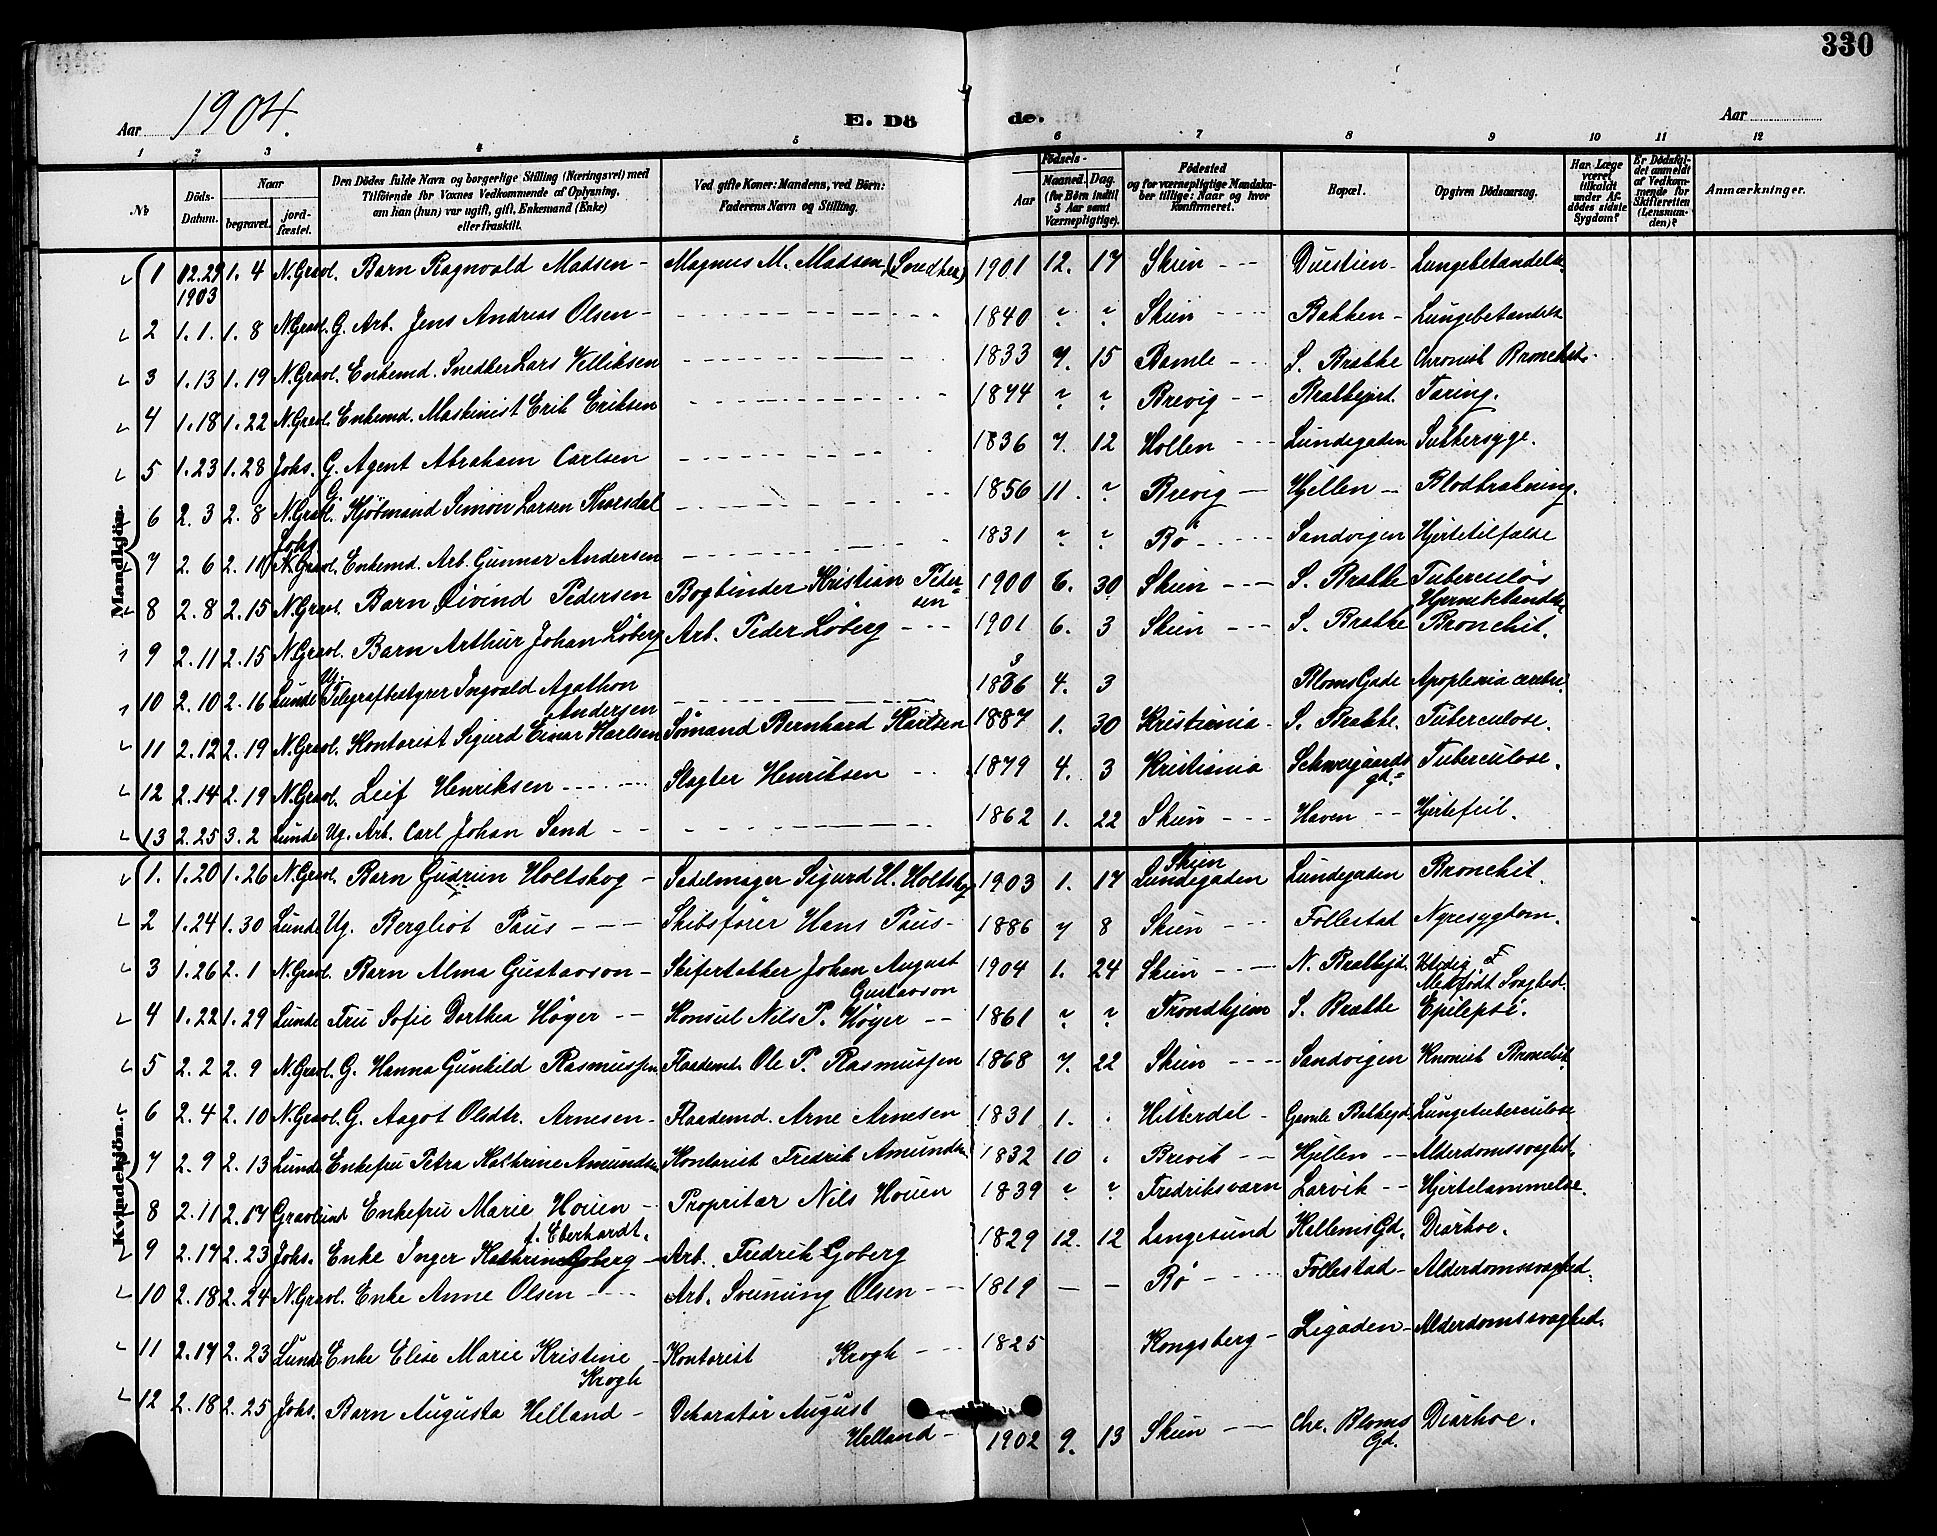 330
Aar 1904. E. Dö de. Aar
1 2 3 4 5 6 7 8 9 10 11 12
№ Döds-Datum. Naar begravet. jordfæstet. Den Dödes fulde Navn og borgerlige Stilling (Næringsvei) med Tilföiende for Voxnes Vedkommende af Oplysning, om han (hun) var ugift, gift, Enkemand (Enke) eller fraskilt. Ved gifte Koner: Mandens, ved Börn: Faderens Navn og Stilling. Födsels- Aar Maaned. Dag. (for Börn indtil 5 Aar samt Værnepligtige). Födested og for værnepligtige Mandskaber tillige: Naar og hvor konfirmeret. Bopæl. Opgiven Dödsaarsag. Har Læge været tilkaldt under Afdödes sidste Sygdom? Er Dödsfaldet anmeldt af Vedkommende for Skifteretten (Lensmanden)? Anmærkninger.
Mandkjön.
1 12.29 1903 1. 4 N. Gravl. Barn Ragnvald Madsen - Magnus M. Madsen (Snedker) 1901 12. 17 Skien - - - Duestien - Lungebetændelse
2 1. 1. 1. 8 N. Gravl. G. Arb. Jens Andreas Olsen - 1840 ? ? Skien - - - Bakken - Lungebetændelse
3 1.13 1.19 N. Gravl. Enkemd. Snedker Lars Velliksen 1833 7. 15 Bamle - - - S. Brække Chronisk Bronchit.
4 1.18 1.22 N. Gravl. Enkemd. Maskinist Erik Eriksen 1874 ? ? Brevig - - Brækkejord. Tæring.
5 1.23 1.28 Johs. G. Agent Abraham Carlsen 1836 7. 12 Hollen - - - Lundegaden Sukkersyge.
6 2. 3 2. 8 N. Gravl. G. Kjöbmand Simon Larsen 1856 11. ? Brevig - Hjellen - Blodbrækning.
7 2. 6 2. 11 Johs. N. Gravl. Enkemd. Arb. Gunnar Andersen 1831 ? ? Bö - - - Sandvigen Hjertetilfælde
8 2. 8 2. 15 N. Gravl. Barn Øivind Pedersen Bogbinder Kristian Pedersen 1900 6. 30 Skien - - - S. Brække Tuberculös Hjernebetændelse
9 2. 11 2. 15 N. Gravl. Barn Arthur Johan Løberg Arb. Peder Løberg - - - 1901 6. 3 Skien - - - S. Brække Bronchit.
10 2. 10 2. 16 Lunde Ug. Telegrafbestyrer Ingvald Agathon Andersen 1836 4. 3 Bloms Gade Apoplexia cerebri.
11 2. 12 2. 19 N. Gravl. Kontorist Sigurd Einar Karlsen Sömand Bernhard Karlsen 1887 1. 30 Kristiania - S. Brække. Tuberculose.
12 2. 14 2. 19 N. Gravl. Leif Henriksen - - - Slagter Henriksen - - 1879 4. 3 Kristiania Schweigaards gd. Tuberculose.
13 2. 25 3. 2 Lunde Ug. Arb. Carl Johan Sand - - 1862 1. 22 Skien - - - Haven - - Hjertefeil.
Kvindekjön.
1. 1.20 1.26 N. Gravl. Barn Gudrun Holtskog - Sadelmager Sigurd H. Holtskog 1903 1. 17 Skien Lundegaden Lundegaden Bronchit.
2 1.24 1.30 Lunde Ug. Bergliot Paus - - - Skibsfører Hans Paus - 1886 7 8 Skien - - - Follestad Nyresygdom.
3 1.26 2. 1 N. Gravl. Barn Alma Gustavson - Skifertækker Johan August Gustavson 1904 1. 24 Skien - - - N. Brækkejd. Utidig F. Medfödt Svaghed.
4 1.22 1.29 Lunde Fru Sofie Dorthea Høyer - - Konsul Nils P. Høyer - - 1861 ? ? Trondhjem S. Brække Epilepsi.
5 2. 2 2. 9 N. Gravl. G. Hanna Gunhild Rasmussen Flaademd. Ole P. Rasmussen 1868 7. 22 Skien - - - Sandvigen Kronisk Bronchit
6 2. 4 2. 10 N. Gravl. G. Aagot Olsdtr. Arnesen - Flaademd. Arne Arnesen 1831 1. . Hitterdal - Gamle Bakkegd. Lungetuberculose
7 2. 9 2. 13 Lunde Enkefru Petra Kathrine Amundsen Kontorist Fredrik Amundsen 1832 10 . Brevik - - Hjellen - - Alderdomssvaghed.
8 2. 11 2. 17 Gravlund Enkefru Marie Houen - f. Eberhardt. Propritær Nils Houen 1839 ? ? Fredriksværn Larvik - - Hjertelammelse.
9 2. 17 2. 23 Johs. Enke Inger Kathrine Goberg - Arb. Fredrik Goberg 1829 12. 12 Langesund Kallems Gd. Diarhoe.
10 2. 18 2. 24 N. Gravl. Enke Anne Olsen - - - Arb. Sveinung Olsen - - - 1819 — — Bö - - - Follestad - Alderdomssvaghed.
11 2. 17 2. 23 Lunde Enke Elise Marie Kristine Krogh - Kontorist Krogh - - - 1825 Kongsberg - Ligaden - Alderdomssvaghed.
12 2. 18 2. 25 Johs. Barn Augusta Helland - Dekoratör August Helland - 1902 9. 13 Skien - - Chr. Bloms Gd. Diarhoe.